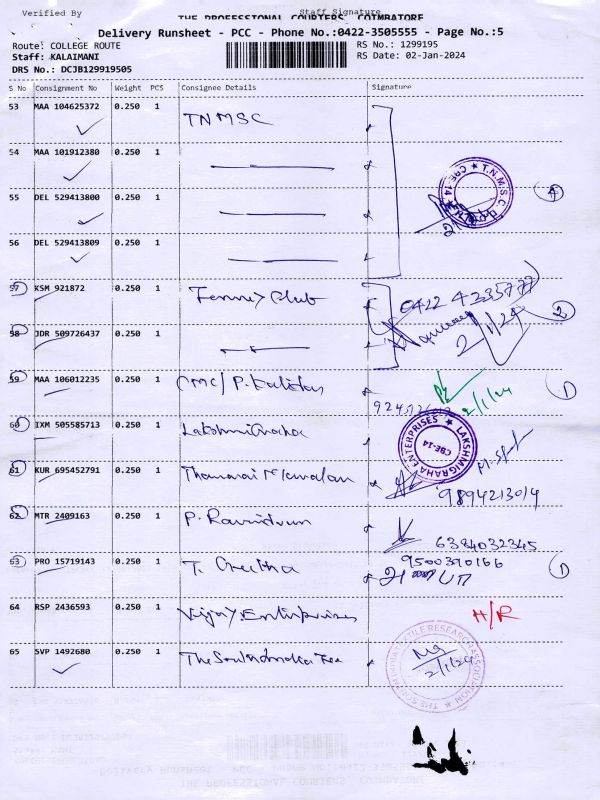 Verified By Staff Signature
THE PROFESSIONAL COURIERS, COIMBATORE
Delivery Runsheet - PCC - Phone No.:0422-3505555 - Page No.:5
Route: COLLEGE ROUTE RS No.: 1299195
Staff: KALAIMANI RS Date: 02-Jan-2024
DRS No.: DCJB129919505
S No Consignment No Weight PCS Consignee Details Signature
53 MAA 104625372 0.250 1 TNMSC
54 MAA 101912380 0.250 1
T.N.M.S.C. CBE-14
4
55 DEL 529413800 0.250 1
56 DEL 529413809 0.250 1
57 KSM 921872 0.250 1 Club 0422 4235777
2
58 JDR 509726437 0.250 1 2/1/24
59 MAA 106012235 0.250 1 CMC/P. 2/1/24 1
60 IXM 505585713 0.250 1 Lakshmigraha
LAKSHMIGRAHA ENTERPRISES CBE-14
61 KUR 695452791 0.250 1 9894213014
62 MTR 2409163 0.250 1 P. 6384032345
63 PRO 15719143 0.250 1 T. 9500390166 1
64 RSP 2436593 0.250 1 Vijay Enterprises H/R
65 SVP 1492680 0.250 1 The
TEXTILE RESEARCH ASSOCIATION
2/1/24